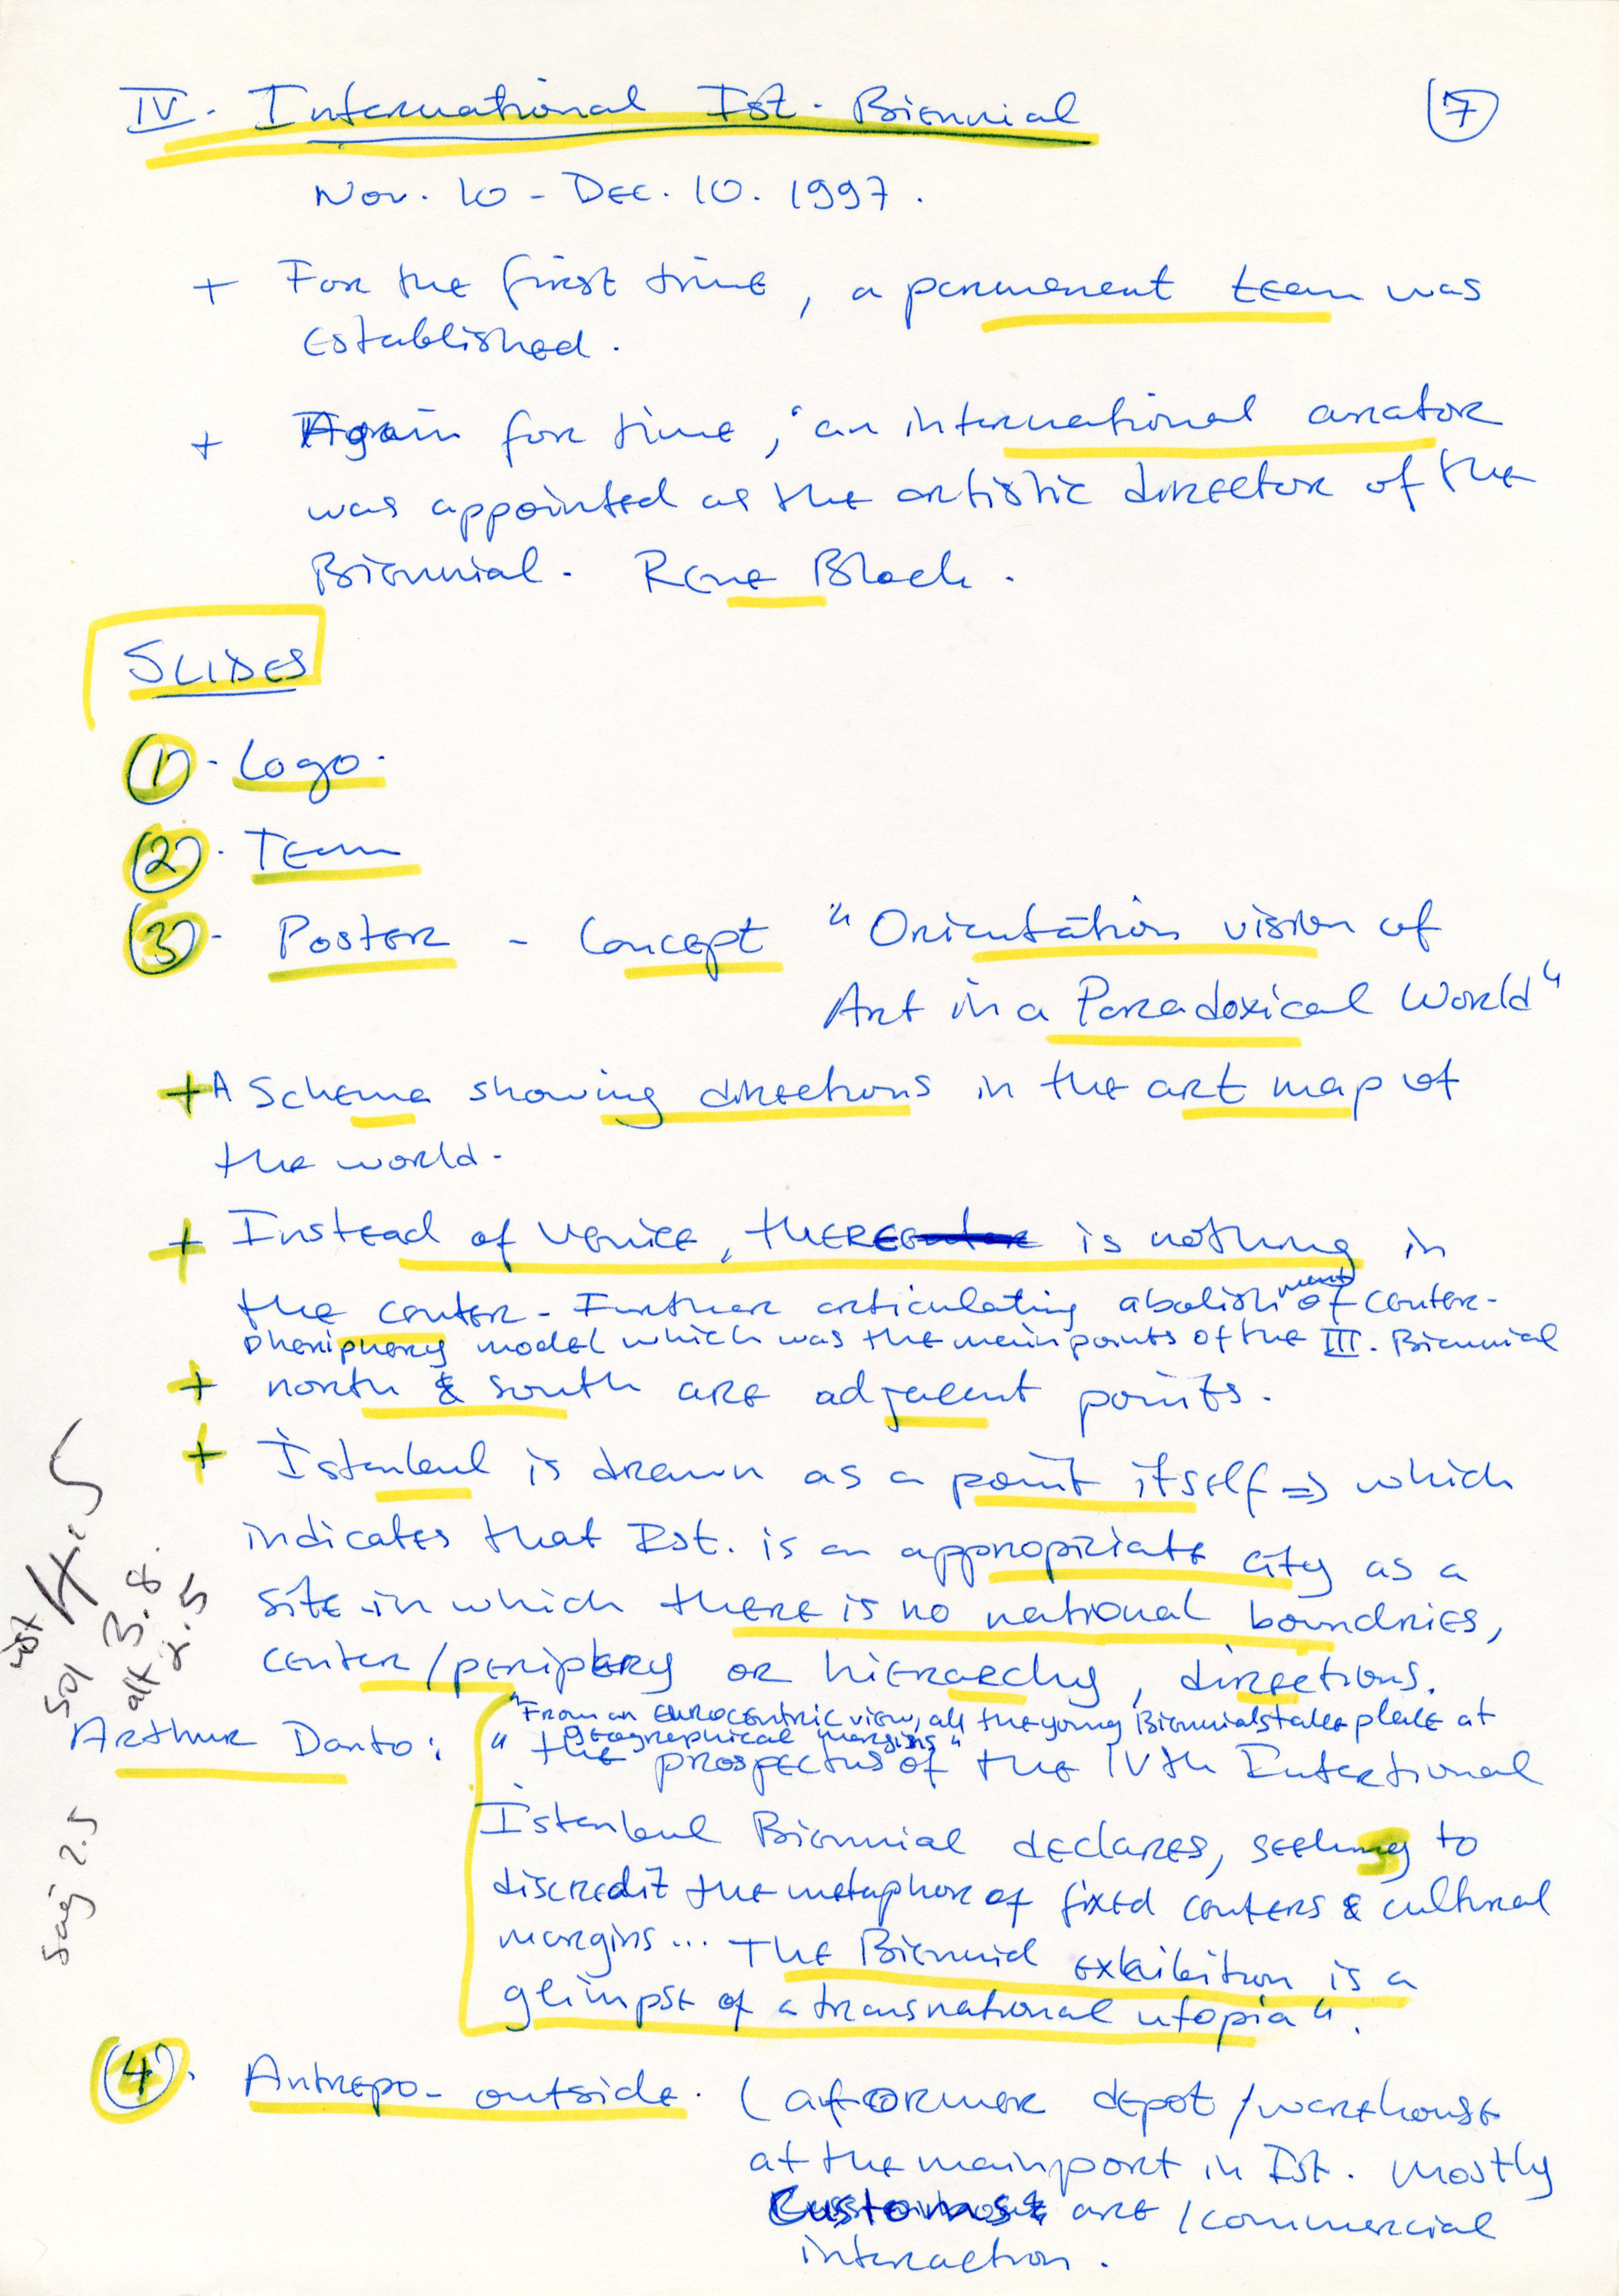 IV. International Ist. Biennial
7
Nov. 10 - Dec. 10. 1997.
+ For the first time, a permenent team was
established.
+ Again for time, an international curator
was appointed as the artistic director of the
Biennial. Rene Block.
SLIDES
1. Logo.
2. Team
3. Poster - Concept "Orientation vision of
Art in a Paradoxical World"
+ A Schema showing directions in the art map of
the world.
+ Instead of Venice, there is nothing in
the center - Further articulating abolishment of center-
pheriphery model which was the main points of the III. Biennial
+ north & south are adjacent points.
+ İstanbul is drawn as a point itself => which
indicates that Ist. is an appropriate city as a
site in which there is no national boundries,
center/periphery or hierarchy, directions.
"From an eurocentric view, all the young Biennials take place at
geographical margins"
Arthur Danto: " the prospectus of the IVth Intertional
Istanbul Biennial declares, seeking to
discredit the metaphor of fixed centers & cultural
margins... The Biennial exhibition is a
glimpse of a transnational utopia".
4. Antrepo - outside. (a former depot / warehouse
at the main port in Ist. mostly
Customs & are / commercial
interaction.
üst 4.5
sol 3.8.
alt 2.5
sağ 2.5